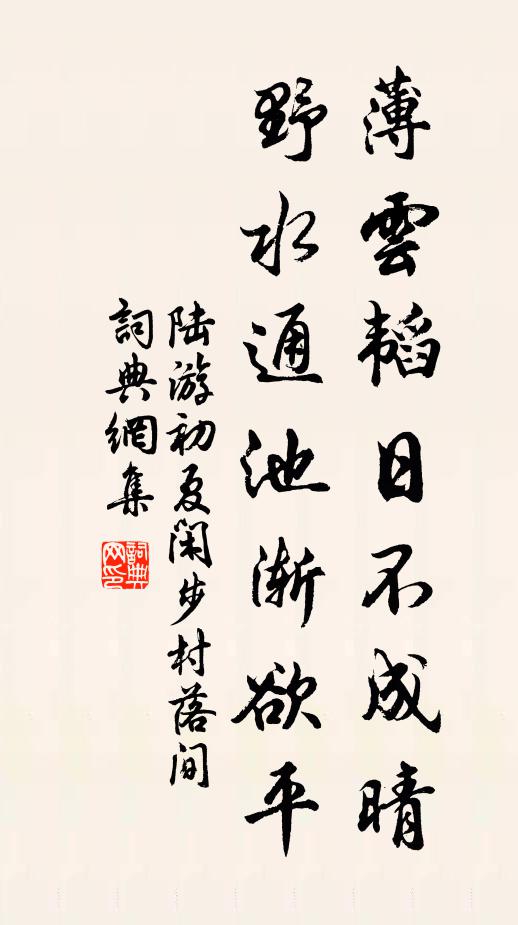 薄雲韬日不成晴
野水通池渐欲平
陆游初夏閑步村落间
詞典網集
詞典网印